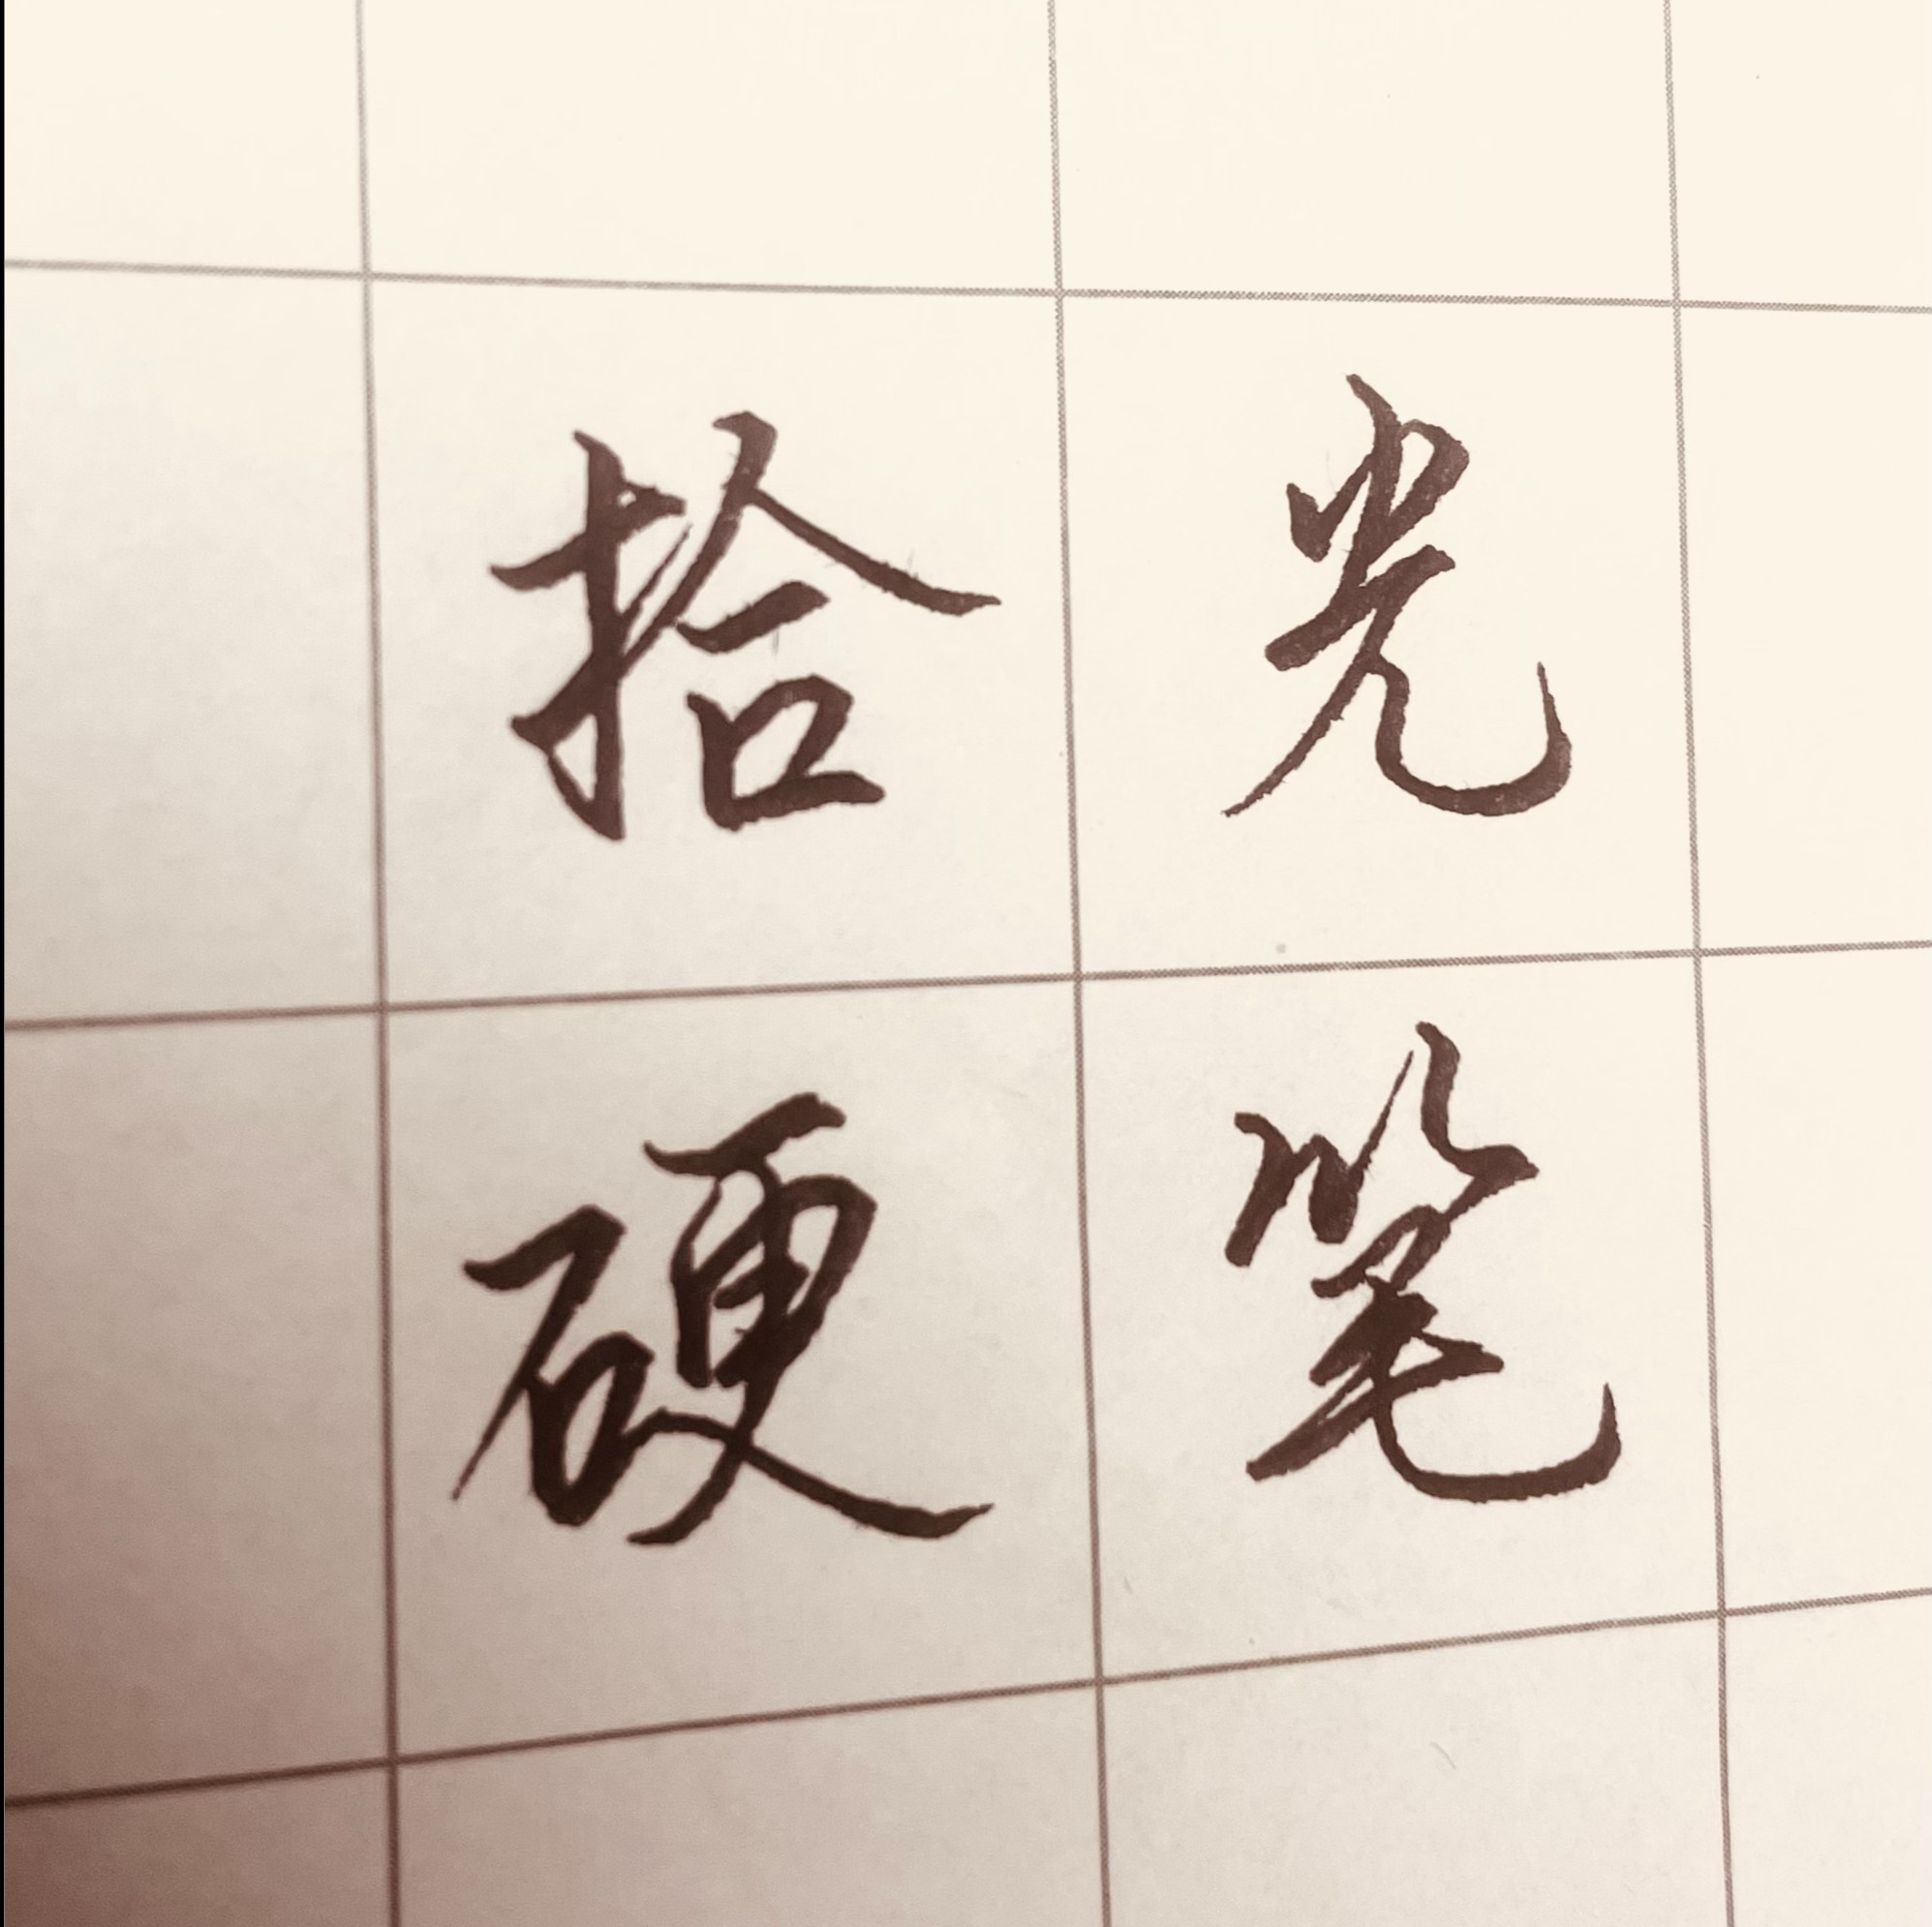 拾光
硬笔